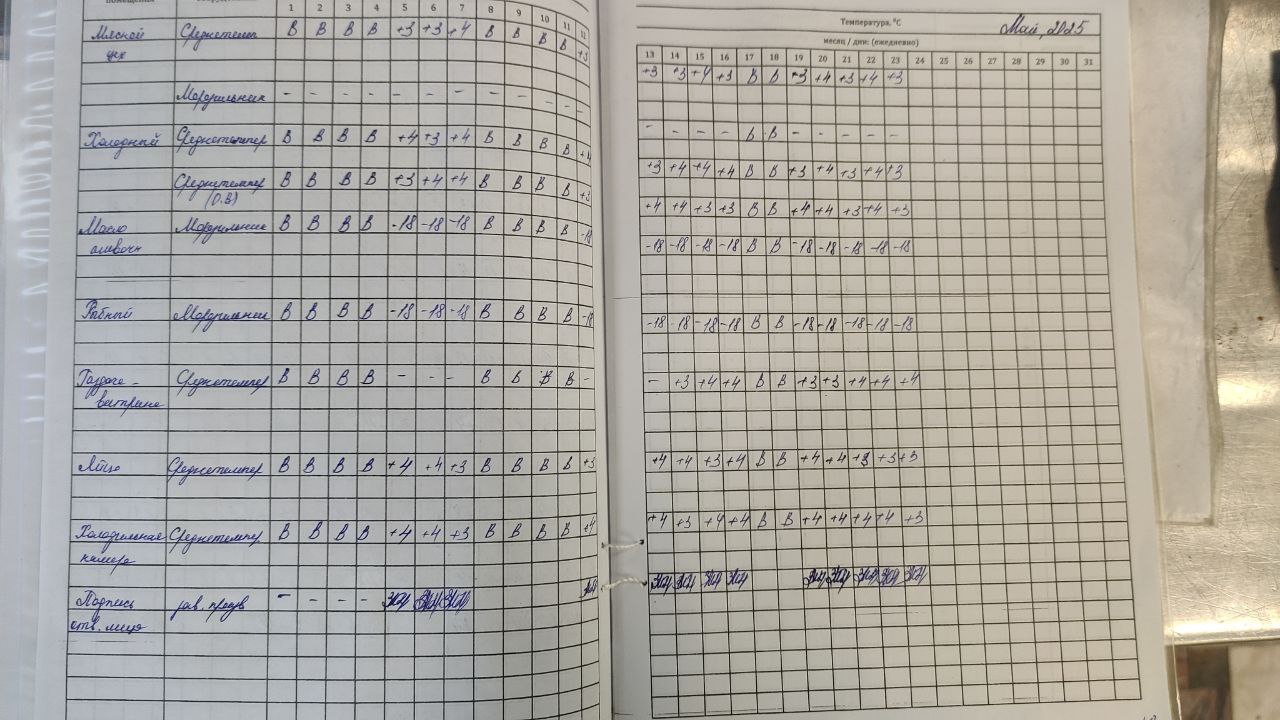 помещения
1 2 3 4 5 6 7 8 9 10 11 12
Мясной Среднетемп В В В В +3 +3 +4 В В В В +3
цех
Морозильник - - - - - - - - - - - -
Холодный Среднетемпер В В В В +4 +3 +4 В В В В +4
Среднетемпер В В В В +3 +4 +4 В В В В +3
(О.В)
Масло Морозильник В В В В -18 -18 -18 В В В В -18
сливочн
Рыбный Морозильник В В В В -18 -18 -18 В В В В -18
Раздача - Среднетемпер В В В В - - - В В В В -
витрина
Яйцо Среднетемпер В В В В +4 +4 +3 В В В В +3
Холодильная Среднетемпер В В В В +4 +4 +3 В В В В +4
камера
Подпись зав. произв - - - -
отв. лица
Температура, °С
Май, 2025
месяц / дни: (ежедневно)
13 14 15 16 17 18 19 20 21 22 23 24 25 26 27 28 29 30 31
+3 +3 +4 +3 В В +3 +4 +3 +4 +3
- - - - В В - - - - -
+3 +4 +4 +4 В В +3 +4 +3 +4 +3
+4 +4 +3 +3 В В +4 +4 +3 +4 +3
-18 -18 -18 -18 В В -18 -18 -18 -18 -18
-18 -18 -18 -18 В В -18 -18 -18 -18 -18
- +3 +4 +4 В В +3 +3 +4 +4 +4
+4 +4 +3 +4 В В +4 +4 +3 +3 +3
+4 +3 +4 +4 В В +4 +4 +4 +4 +3